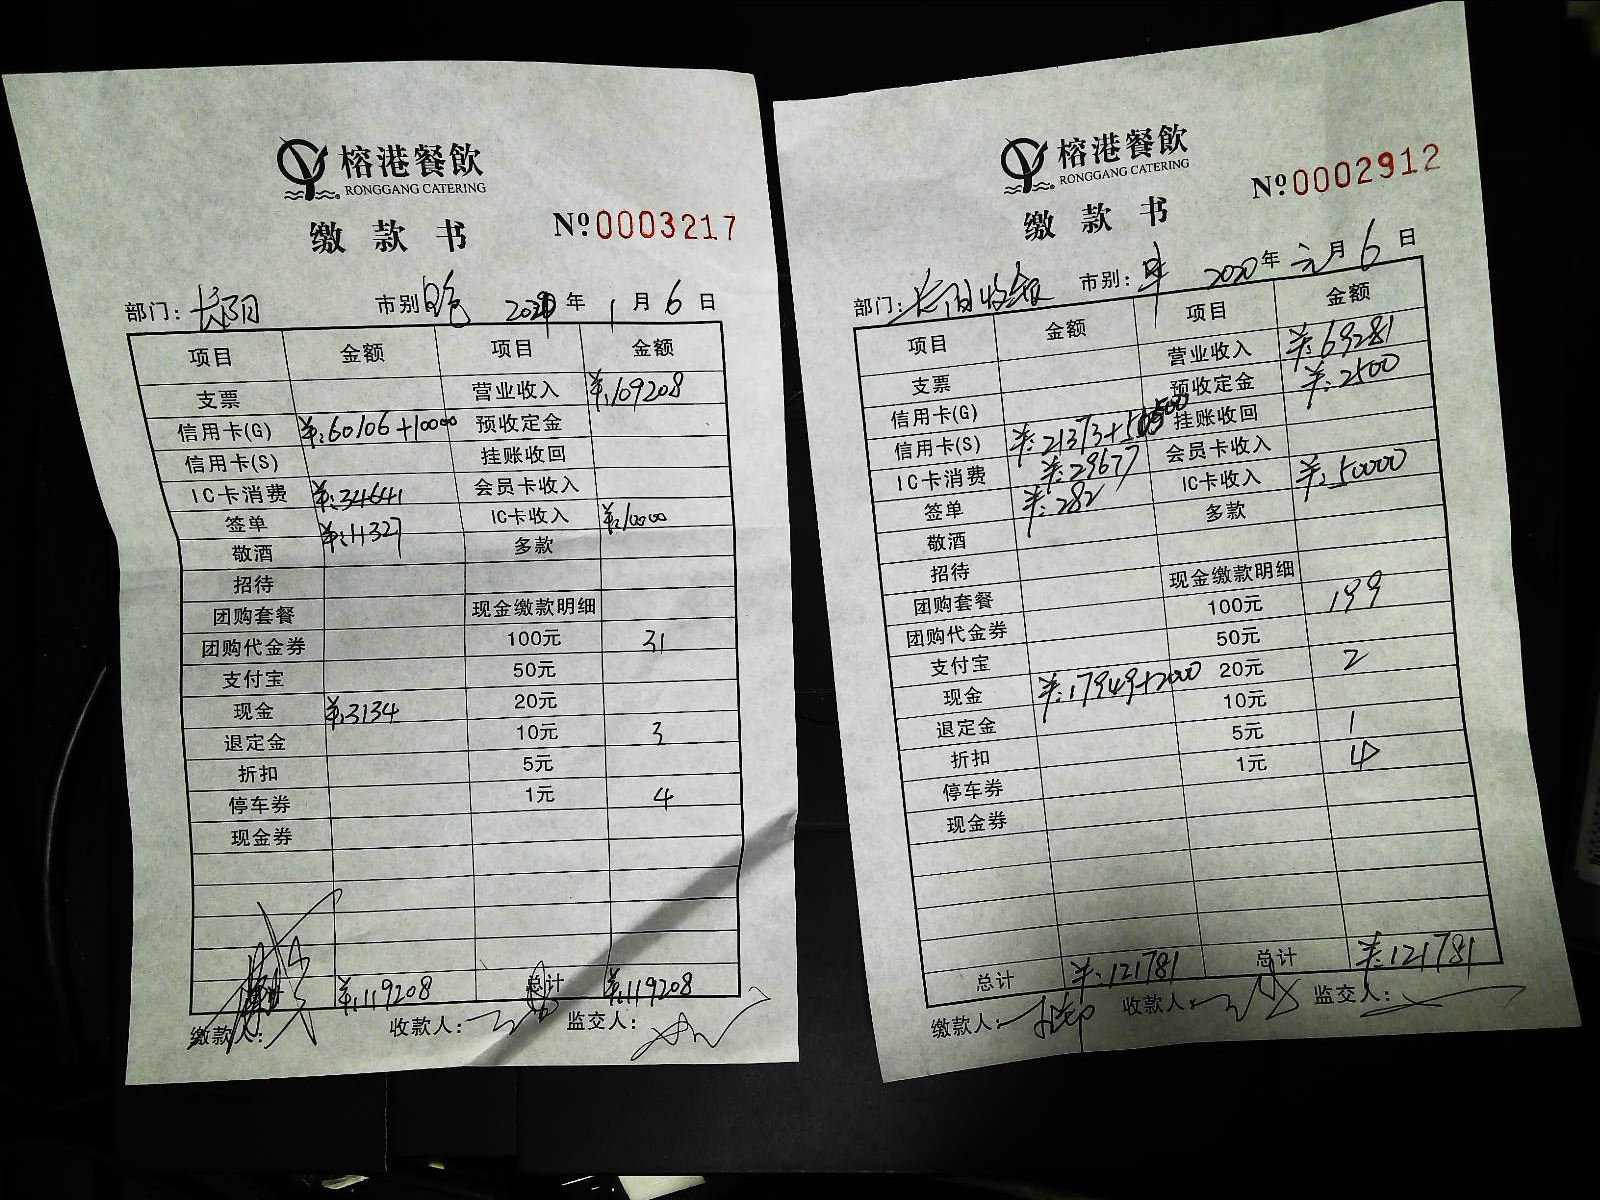 榕港餐飲
RONGGANG CATERING
缴款书
Nº0003217
部门：长阳 市别 2020年1月6日
项目 金额 项目 金额
支票 营业收入 ¥:109208
信用卡(G) ¥:60106+10000 预收定金
信用卡(S) 挂账收回
IC卡消费 ¥:34641 会员卡收入
签单 ¥:11327 IC卡收入 ¥:10000
敬酒 多款
招待
团购套餐 现金缴款明细
团购代金券 100元 31
支付宝 50元
现金 ¥:3134 20元
退定金 10元 3
折扣 5元
停车券 1元 4
现金券
¥:119208 总计 ¥:119208
缴款人： 收款人： 监交人：
榕港餐飲
RONGGANG CATERING
缴款书
Nº0002912
部门：长阳收银 市别： 2020年元月6日
项目 金额 项目 金额
支票 营业收入 ¥:69281
信用卡(G) 预收定金 ¥:2500
信用卡(S) ¥:21373+ 挂账收回
IC卡消费 ¥:29677 会员卡收入
签单 ¥:282 IC卡收入 ¥:50000
敬酒 多款
招待
团购套餐 现金缴款明细
团购代金券 100元 199
支付宝 50元
现金 ¥:17949+2000 20元 2
退定金 10元
折扣 5元 1
停车券 1元 4
现金券
总计 ¥:121781 总计 ¥:121781
缴款人： 收款人： 监交人：